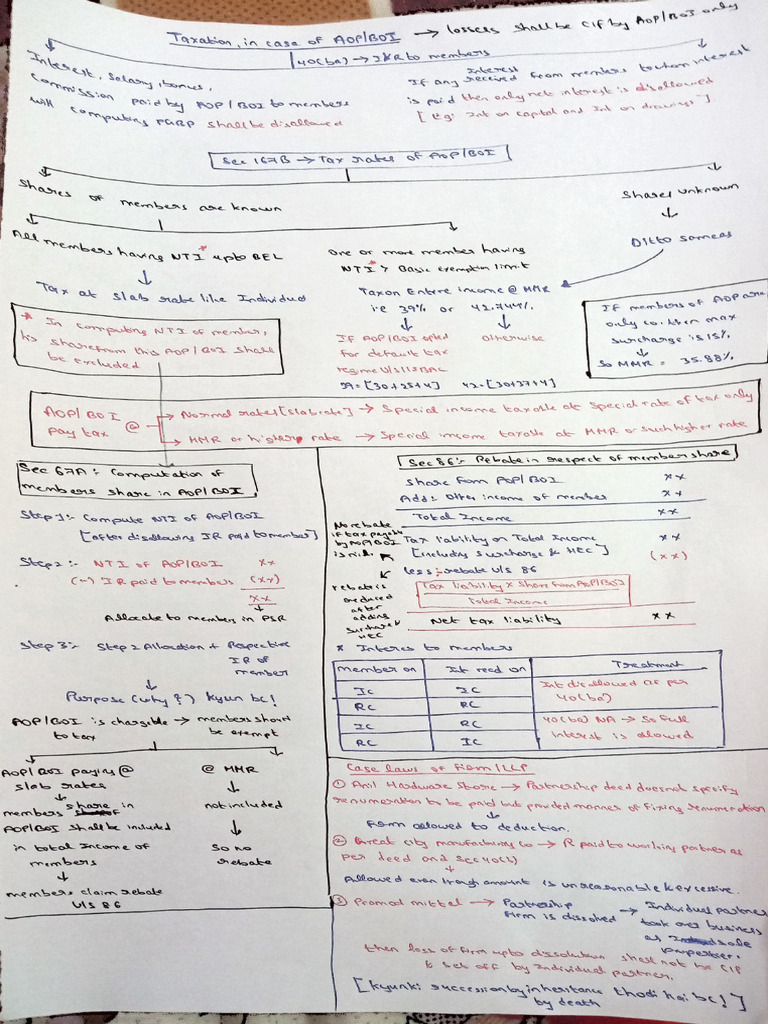 Taxation, in case of AOP/BOI → lossers shall be C/F by AOP/BOI only
40(ba) → I & R to members
Interest, salary, bonus,
commission paid by AOP/BOI to members
will computing PGBP shall be disallowed
If any Interest received from members to whom interest
is paid then only net interest is disallowed
[Eg: Int on capital and Int on drawings]
Sec 167B → Tax rates of AOP/BOI
Shares of members are known
Share unknown
All members having NTI* upto BEL
One or more member having
NTI* > Basic exemption limit
Ditto same as
Tax at slab rate like Individual
Tax on Entire income @ MMR
i.e 39% or 42.744%
* In computing NTI of member,
his share from this AOP/BOI share
be excluded
If AOP/BOI opted
for default tax
regime U/s 115BAC
otherwise
39 = [30+25+4]
42 = [30+37+4]
If members of AOP are
only co. then max
surcharge is 15%
↓
So MMR = 35.88%
AOP/BOI
pay tax @
→ Normal rates [slab rate] → Special income taxable at special rate of tax only
→ MMR or higher rate → Special income taxable at MMR or such higher rate
Sec 67A :- Computation of
members share in AOP/BOI
Step 1:- Compute NTI of AOP/BOI
[after disallowing IR paid to member]
Step 2:- NTI of AOP/BOI xx
(-) IR paid to members (xx)
xx
Allocate to members in PSR
Step 3:- Step 2 Allocation + Respective
IR of
member
Purpose (why?) Kyun bc!
AOP/BOI is chargible → members should
to tax be exempt
AOP/BOI paying @
slab rates
members share in
AOP/BOI shall be included
in total Income of
members
members claim rebate
U/s 86
@ MMR
not included
So no
rebate
Sec 86:- Rebate in respect of member share
Share from AOP/BOI xx
Add: Other income of member xx
Total Income xx
Tax liability on Total Income xx
[includes surcharge & HEC] (xx)
less :- rebate U/s 86
Tax liability x Share from AOP/BOI
Total Income
Net tax liability xx
No rebate
if tax payable
by AOP/BOI
is nil.
rebate is
after
adding
surcharge &
HEC
* Interes to members
Member on Int recd on Treatment
IC IC Int disallowed as per
RC RC 40(ba)
IC RC 40(ba) NA → So full
RC IC interest is allowed
Case laws of firm/LLP
① Anil Hardware Store → Partnership deed does not specify
renumeration to be paid but provided manner of fixing renumeration
↓
Firm allowed to deduction.
② Great city manufacturing co → R paid to working partner as
per deed and sec 40(b)
↓
Allowed even though amount is unreasonable & excessive.
③ Pramod mittal → Partnership → Individual partner
Firm is dissolved took over business
as sole
then loss of firm upto dissolution shall not be C/F
& set off by individual partner.
[Kyunki succession by inheritance thodi hai bc!]
by death